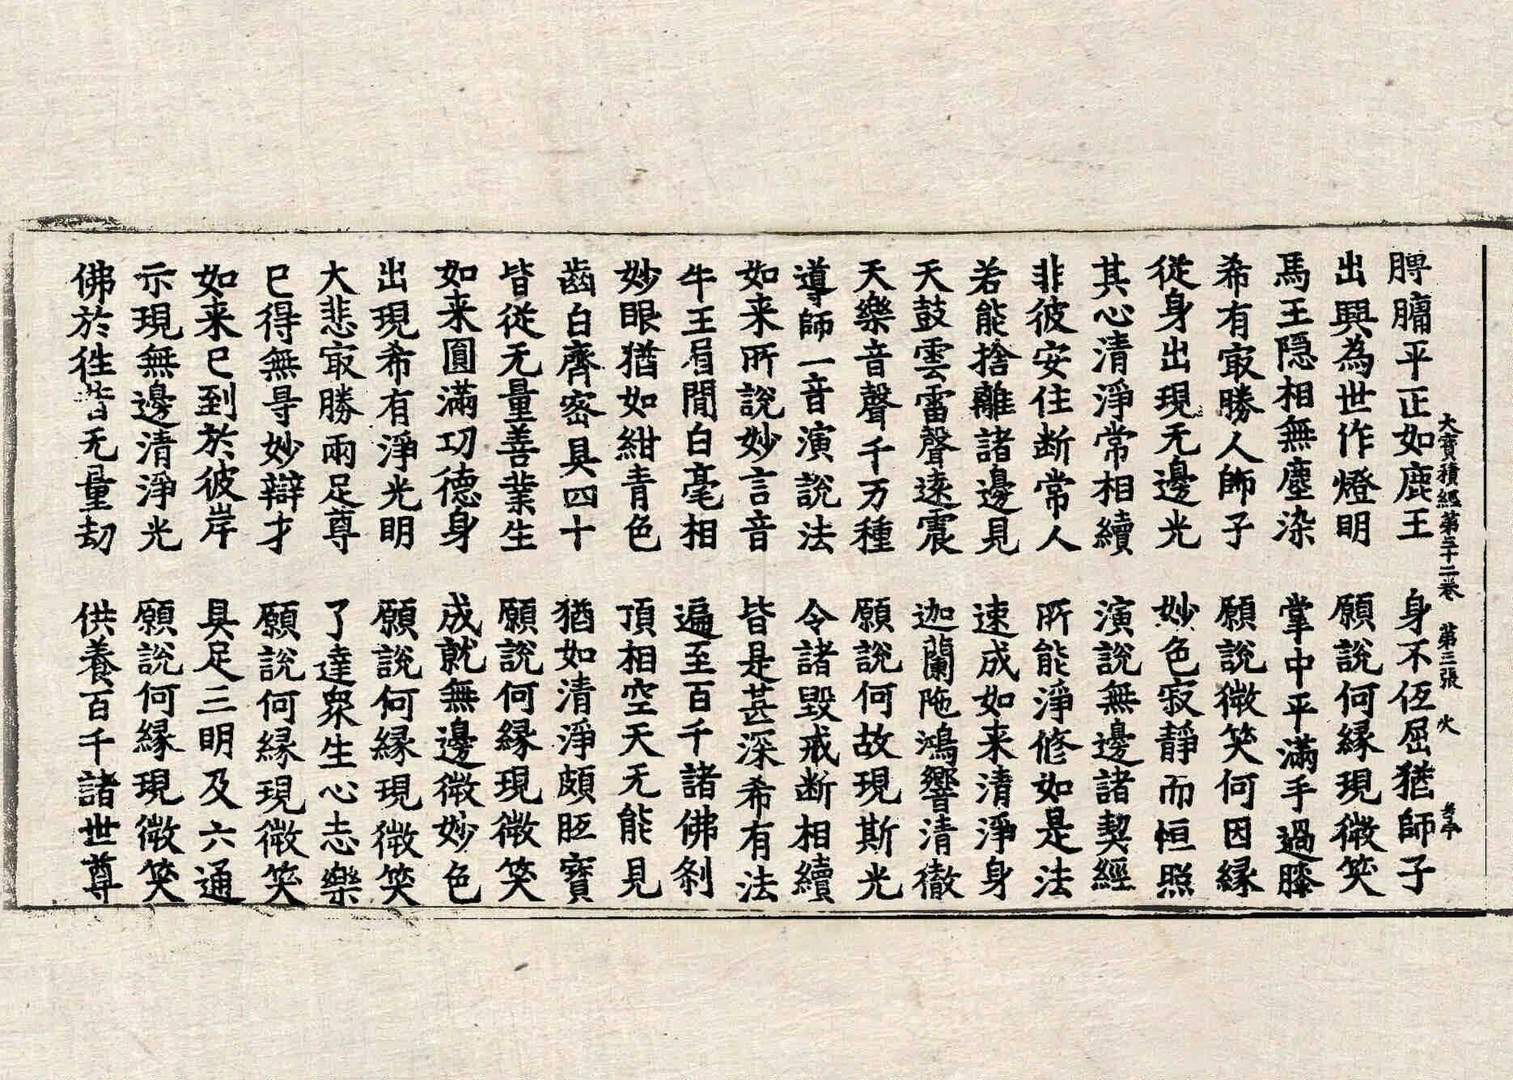 大寶積經第三十二卷　第三張　火
𨄔𦟛平正如鹿王　身不伛屈猶師子
出興為世作燈明　願說何縁現微笑
馬王隠相無塵染　掌中平滿手過膝
希有㝡勝人師子　願說微笑何因縁
從身出現无邊光　妙色寂靜而恒照
其心清淨常相續　演說無邊諸契經
非彼安住断常人　所能淨修如是法
若能捨離諸邊見　速成如来清淨身
天鼓雲雷聲遠震　迦蘭陁鴻響清徹
天樂音聲千万種　願說何故現斯光
導師一音演說法　令諸毀戒断相續
如来所說妙言音　皆是甚深希有法
牛王眉間白毫相　遍至百千諸佛刹
妙眼猶如紺青色　頂相空天无能見
齒白齊密具四十　猶如清淨頗胝寳
皆從无量善業生　願說何縁現微笑
如来圓滿功德身　成就無邊微妙色
出現希有淨光明　願說何縁現微笑
大悲㝡勝兩足尊　了達衆生心志樂
已得無㝵妙辯才　願說何縁現微笑
如来已到於彼岸　具足三明及六通
示現無邊清淨光　願說何縁現微笑
佛於徃昔无量劫　供養百千諸世尊